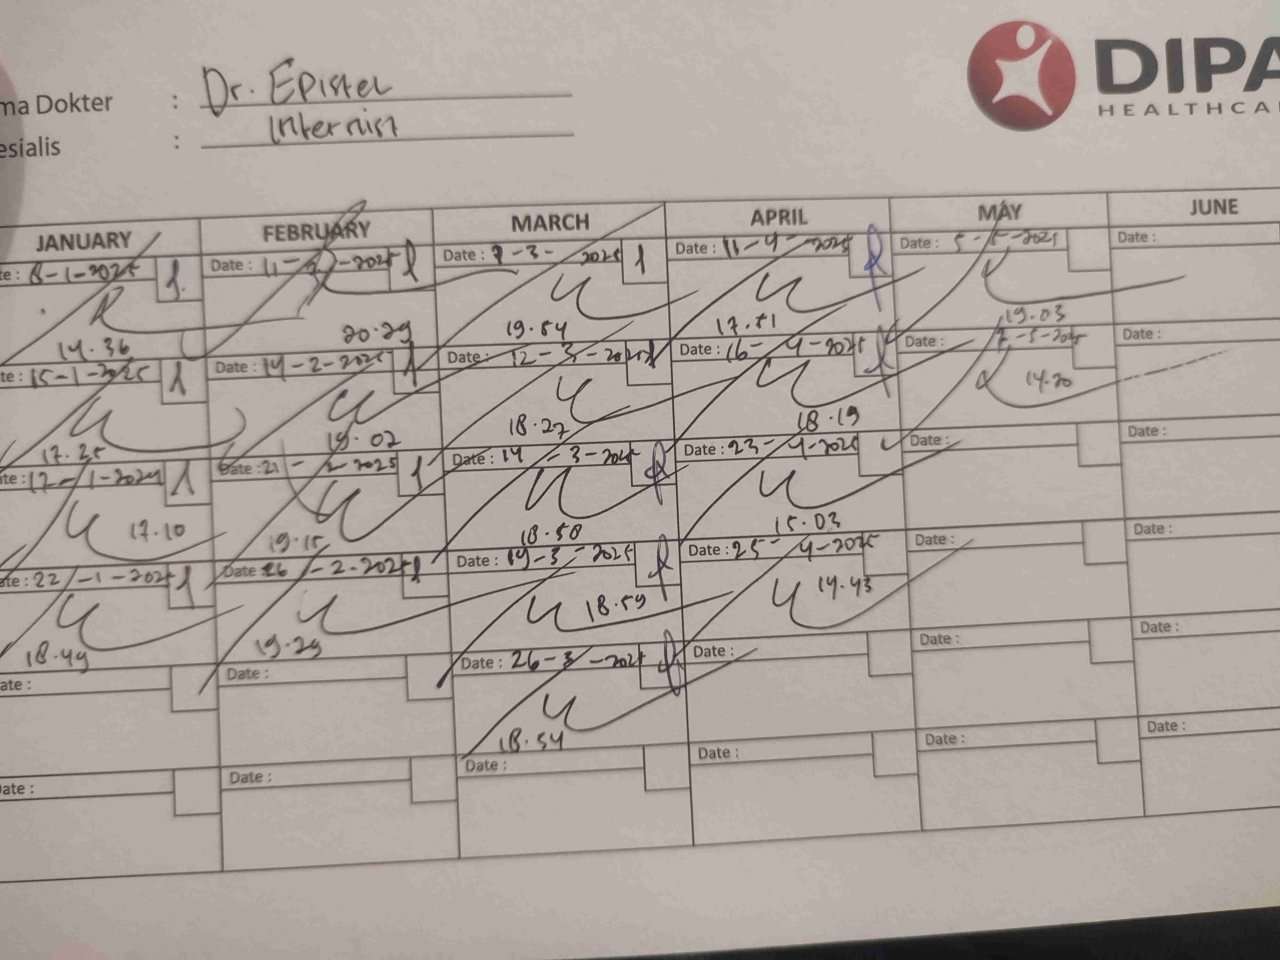 ma Dokter : Dr. Epistel
esialis : Internist
DIPA
HEALTHCA
JANUARY FEBRUARY MARCH APRIL MAY JUNE
te: 8-1-2025 Date : 11- -2025 Date : 7-3- 2025 Date : 11-4-2025 Date : 5-5-2025 Date :
14.36 20.29 19.54 17.51 19.03
te: 15-1-2025 Date : 14-2-2025 Date : 12-3-2025 Date : 16-4-2025 Date : 7-5-2025 Date :
17.25 19.02 18.27 18.19 14.20
te: 17-1-2025 Date : 21-2-2025 Date : 14-3-2025 Date : 23-4-2025 Date : Date :
17.10 19.15 18.58 15.03
ate: 22-1-2025 Date 26-2-2025 Date : 19-3-2025 Date : 25-4-2025 Date : Date :
18.49 19.29 18.59 14.43
ate : Date : Date : 26-3-2025 Date : Date : Date :
18.54
ate : Date : Date : Date : Date : Date :